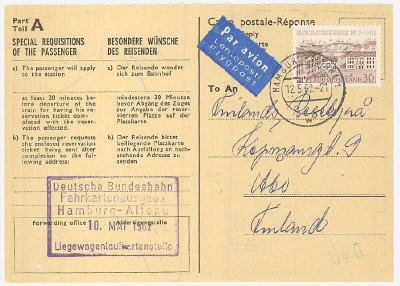 Part
Teil A
SPECIAL REQUISITIONS
OF THE PASSENGER
a) The passenger will apply
to the station
at least 30 minutes
before departure of the
train for having his re-
servation ticket com-
pleted with the reserved
place
b) The passenger requests
the enclosed reservation
ticket being sent after
completion to the following
address:
BESONDERE WÜNSCHE
DES REISENDEN
a) Der Reisende wendet
sich zum Bahnhof
mindestens 30 Minuten
bevor Abgang des Zuges
vor Angabe der reser-
vierten Platze auf der
Platzkarte
b) Der Reisende bittet
beiliegende Platzkarte
nach Ausfüllung an nach-
stehende Adresse zu
senden
Forwarding office
Deutsche Bundesbahn
Fahrkartenausgabe
Hamburg-Altona
10. MAI 1962
Liegewagenlaufkartenstelle
Carte postale-Réponse
Reply
Par avion
Lentoposti
Flygpost
12.5.62-21
1812-1962
30
To An
Finlands
9
Åbo
Finland